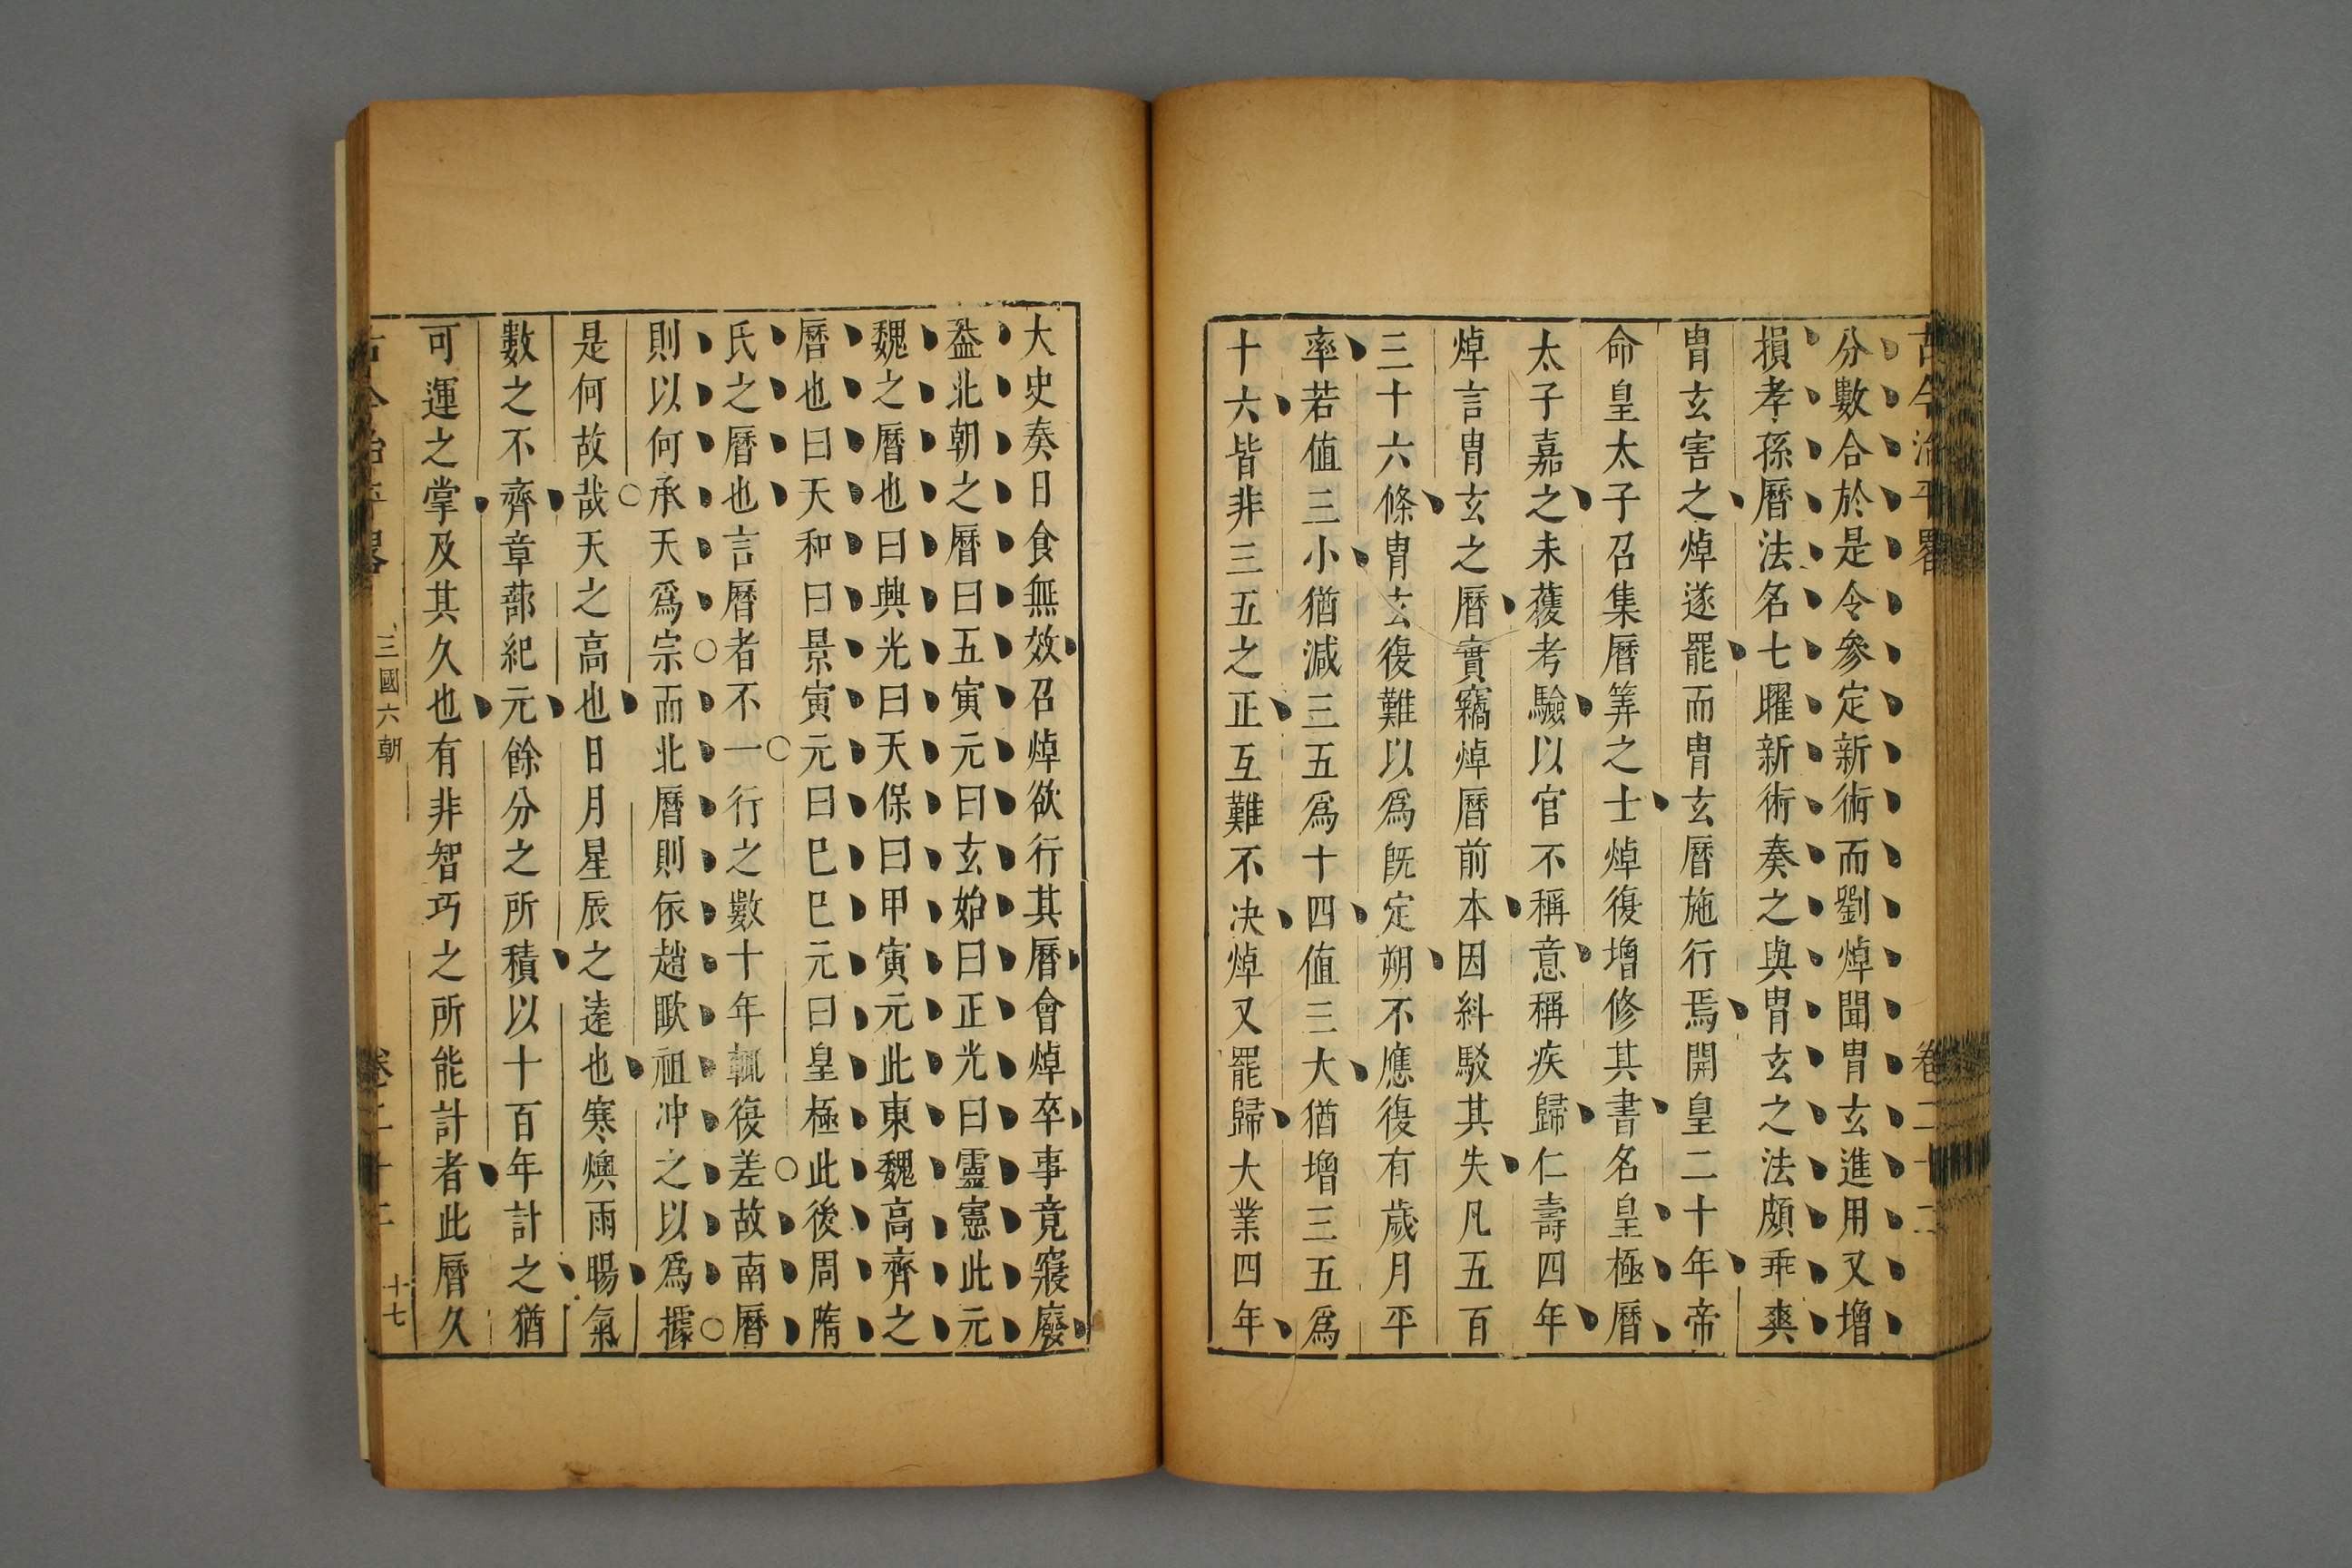 古今治平畧 卷二十二
分數合於是令參定新術而劉焯聞胄玄進用又增
損孝孫曆法名七曜新術奏之與胄玄之法頗乖爽
胄玄害之焯遂罷而胄玄曆施行焉開皇二十年帝
命皇太子召集曆筭之士焯復增修其書名皇極曆
太子嘉之未獲考驗以官不稱意稱疾歸仁壽四年
焯言胄玄之曆實竊焯曆前本因糾駁其失凡五百
三十六條胄玄復難以爲旣定朔不應復有歲月平
率若值三小猶減三五爲十四值三大猶增三五爲
十六皆非三五之正互難不决焯又罷歸大業四年
大史奏日食無效召焯欲行其曆會焯卒事竟寢廢
葢北朝之曆曰五寅元曰玄始曰正光曰靈憲此元
魏之曆也曰興光曰天保曰甲寅元此東魏高齊之
曆也曰天和曰景寅元曰巳巳元曰皇極此後周隋
氏之曆也言曆者不一行之數十年輒復差故南曆
則以何承天爲宗而北曆則依趙㪉祖冲之以爲據
是何故哉天之高也日月星辰之逺也寒燠雨暘氣
數之不齊章蔀紀元餘分之所積以十百年計之猶
可運之掌及其久也有非智巧之所能計者此曆久
古今治平畧 三國六朝 卷二十二 十七